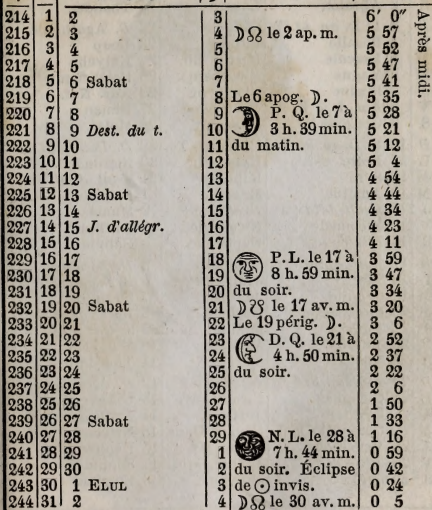 214 1 2 3 6′ 0″
215 2 3 4 ☽☊ le 2 ap. m. 5 57
216 3 4 5 5 52
217 4 5 6 5 47
218 5 6 Sabat 7 5 41
219 6 7 8 Le 6 apog. ☽. 5 35
220 7 8 9 P. Q. le 7 à 5 28
221 8 9 Dest. du t. 10 3 h. 39 min. 5 21
222 9 10 11 du matin. 5 12
223 10 11 12 5 4
224 11 12 13 4 54
225 12 13 Sabat 14 4 44
226 13 14 15 4 34
227 14 15 J. d'allégr. 16 4 23
228 15 16 17 4 11
229 16 17 18 P. L. le 17 à 3 59
230 17 18 19 8 h. 59 min. 3 47
231 18 19 20 du soir. 3 34
232 19 20 Sabat 21 ☽☋ le 17 av. m. 3 20
233 20 21 22 Le 19 périg. ☽. 3 6
234 21 22 23 D. Q. le 21 à 2 52
235 22 23 24 4 h. 50 min. 2 37
236 23 24 25 du soir. 2 22
237 24 25 26 2 6
238 25 26 27 1 50
239 26 27 Sabat 28 1 33
240 27 28 29 N. L. le 28 à 1 16
241 28 29 1 7 h. 44 min. 0 59
242 29 30 2 du soir. Éclipse 0 42
243 30 1 ELUL 3 de ☉ invis. 0 24
244 31 2 4 ☽☊ le 30 av. m. 0 5
Après midi.